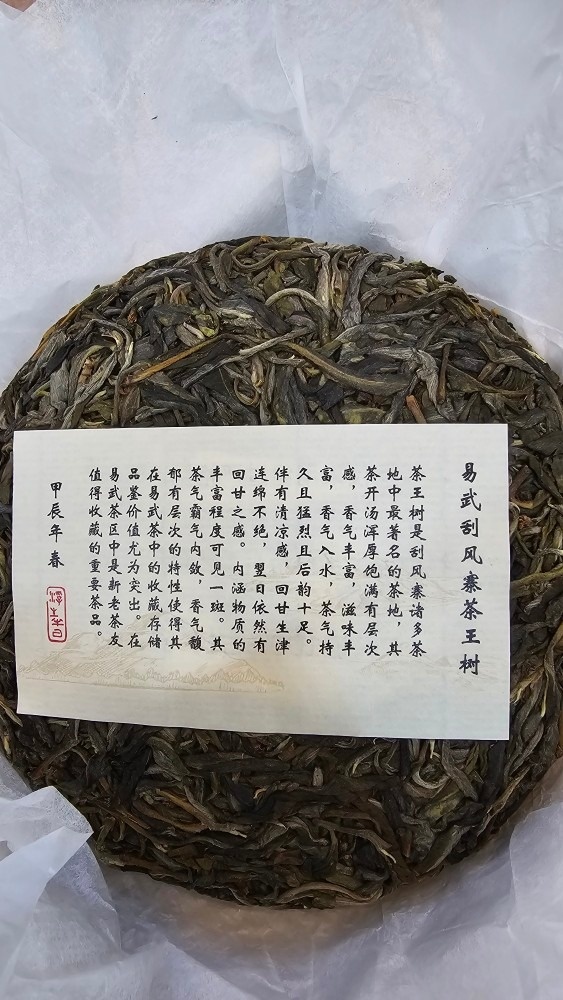 易武刮风寨茶王树
茶王树是刮风寨诸多茶
地中最著名的茶地，其
茶开汤浑厚饱满有层次
感，香气丰富，滋味丰
富，香气入水，茶气持
久且猛烈且后韵十足。
伴有清凉感，回甘生津
连绵不绝，翌日依然有
回甘之感。内涵物质的
丰富程度可见一斑。其
茶气霸气内敛，香气馥
郁有层次的特性使得其
在易武茶中的收藏存储
品鉴价值尤为突出。在
易武茶区中是新老茶友
值得收藏的重要茶品。
甲辰年春